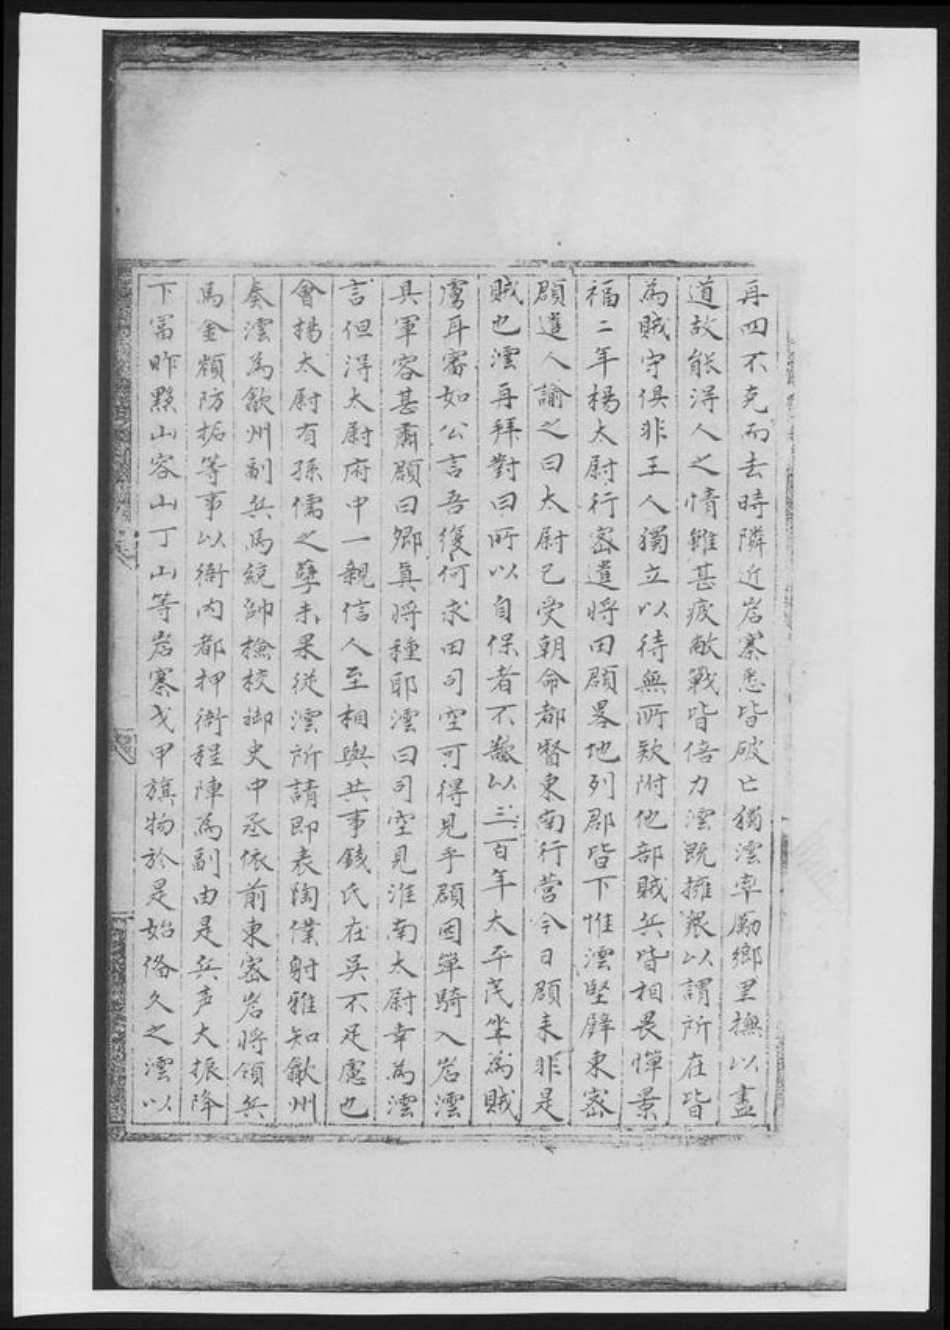 再四不克而去時隣近岩寨悉皆破亡獨澐率勵鄉里撫以盡
道故能得人之情雖甚疲敝戰皆倍力澐既擁衆以謂所在皆
為賊守俱非王人獨立以待無所欵附他部賊兵皆相畏憚景
福二年楊太尉行宻遣将田頵畧地列郡皆下惟澐堅肆東宻
頵遣人諭之曰太尉已受朝命都督東南行营今日頵来非是
賊也澐再拜對曰所以自保者不欲以三百年太平民坐為賊
虜耳審如公言吾復何求田司空可得見乎頵因单騎入岩澐
具軍容甚肅頵曰鄉真将種耶澐曰司空見淮南太尉幸為澐
言但淂太尉府中一親信人至相與共事錢氏在吴不足慮也
會楊太尉有孫儒之孽未果従澐所請即表陶僕射雅知歙州
奏澐為歙州副兵馬統帥檢校御史中丞依前東宻岩将領兵
馬金額防拓等事以衙内都押衙程陣為副由是兵声大振降
下冨昨黟山容山丁山等岩寨戈甲旗物於是始俻久之澐以